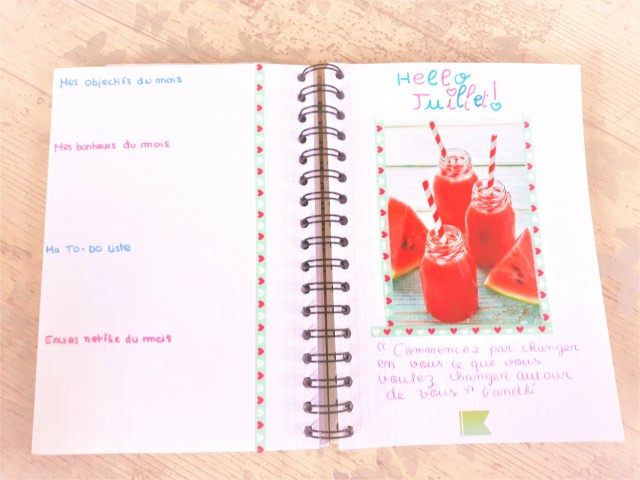 Mes objectifs du mois
Mes bonheurs du mois
Ma TO-DO liste
Envies netflix du mois
Hello
Juillet!
« Commencez par changer
en vous ce que vous
voulez changer autour
de vous » Gandhi